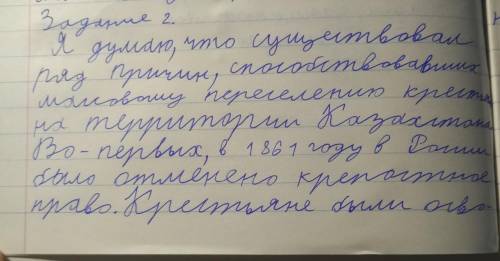 Задание 2.
Я думаю, что существовал
ряд причин, способствовавших
массовому переселению крестья
на территории Казахстана
Во-первых, в 1861 году в России
было отменено крепостное
право. Крестьяне были осво-